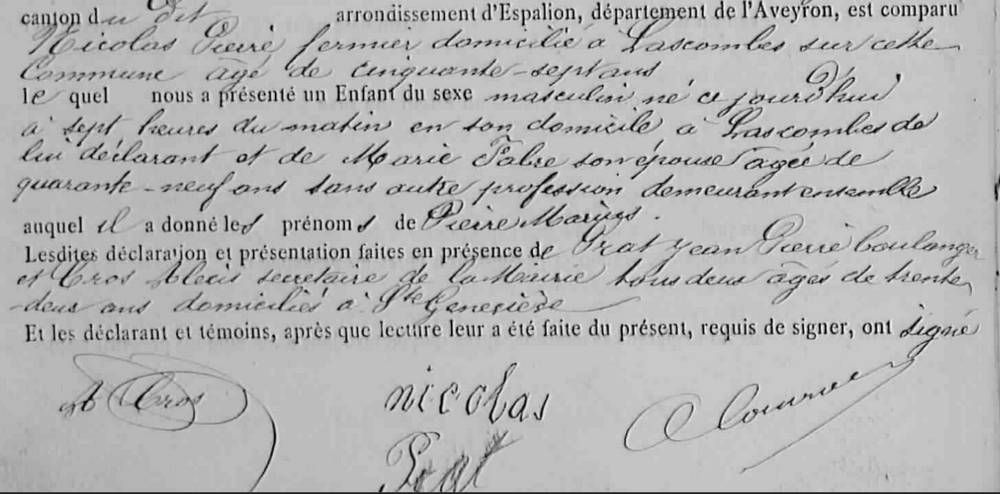 canton du dit arrondissement d'Espalion, département de l'Aveyron, est comparu
Nicolas Pierre fermier domicilié à Lascombes sur cette
Commune âgé de cinquante-sept ans
le quel nous a présenté un Enfant du sexe masculin né ce jourd'hui
à sept heures du matin en son domicile à Lascombes de
lui déclarant et de Marie Fabre son épouse âgée de
quarante-neuf ans sans autre profession demeurant ensemble
auquel il a donné les prénoms de Pierre Marius.
Lesdites déclaration et présentation faites en présence de Prat Jean Pierre boulanger
et Cros Alexis secrétaire de la Mairie tous deux âgés de trente
-deux ans domiciliés à Ste Geneviève
Et les déclarant et témoins, après que lecture leur a été faite du présent, requis de signer, ont signé
A Cros nicolas
Prat